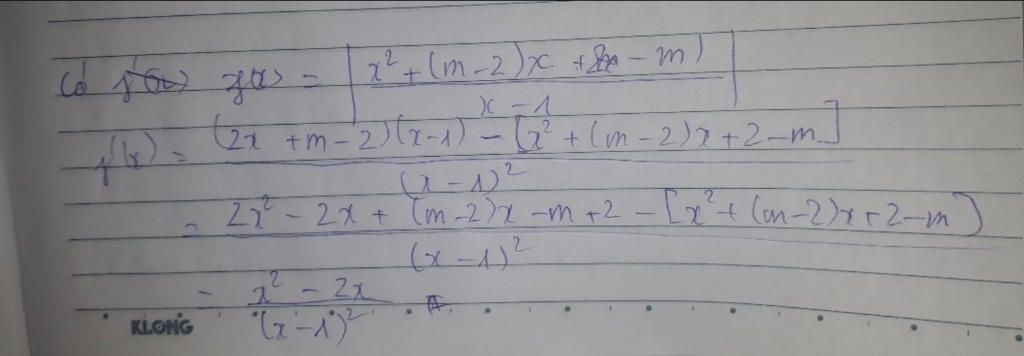 Có f'(x) f(x) = | x² + (m-2)x + 2 - m) / x - 1 |
f'(x) = (2x + m - 2)(x-1) - [x² + (m-2)x + 2 - m] / (x-1)²
= 2x² - 2x + (m-2)x - m + 2 - [x² + (m-2)x + 2 - m] / (x-1)²
= x² - 2x / (x-1)²
KLONG